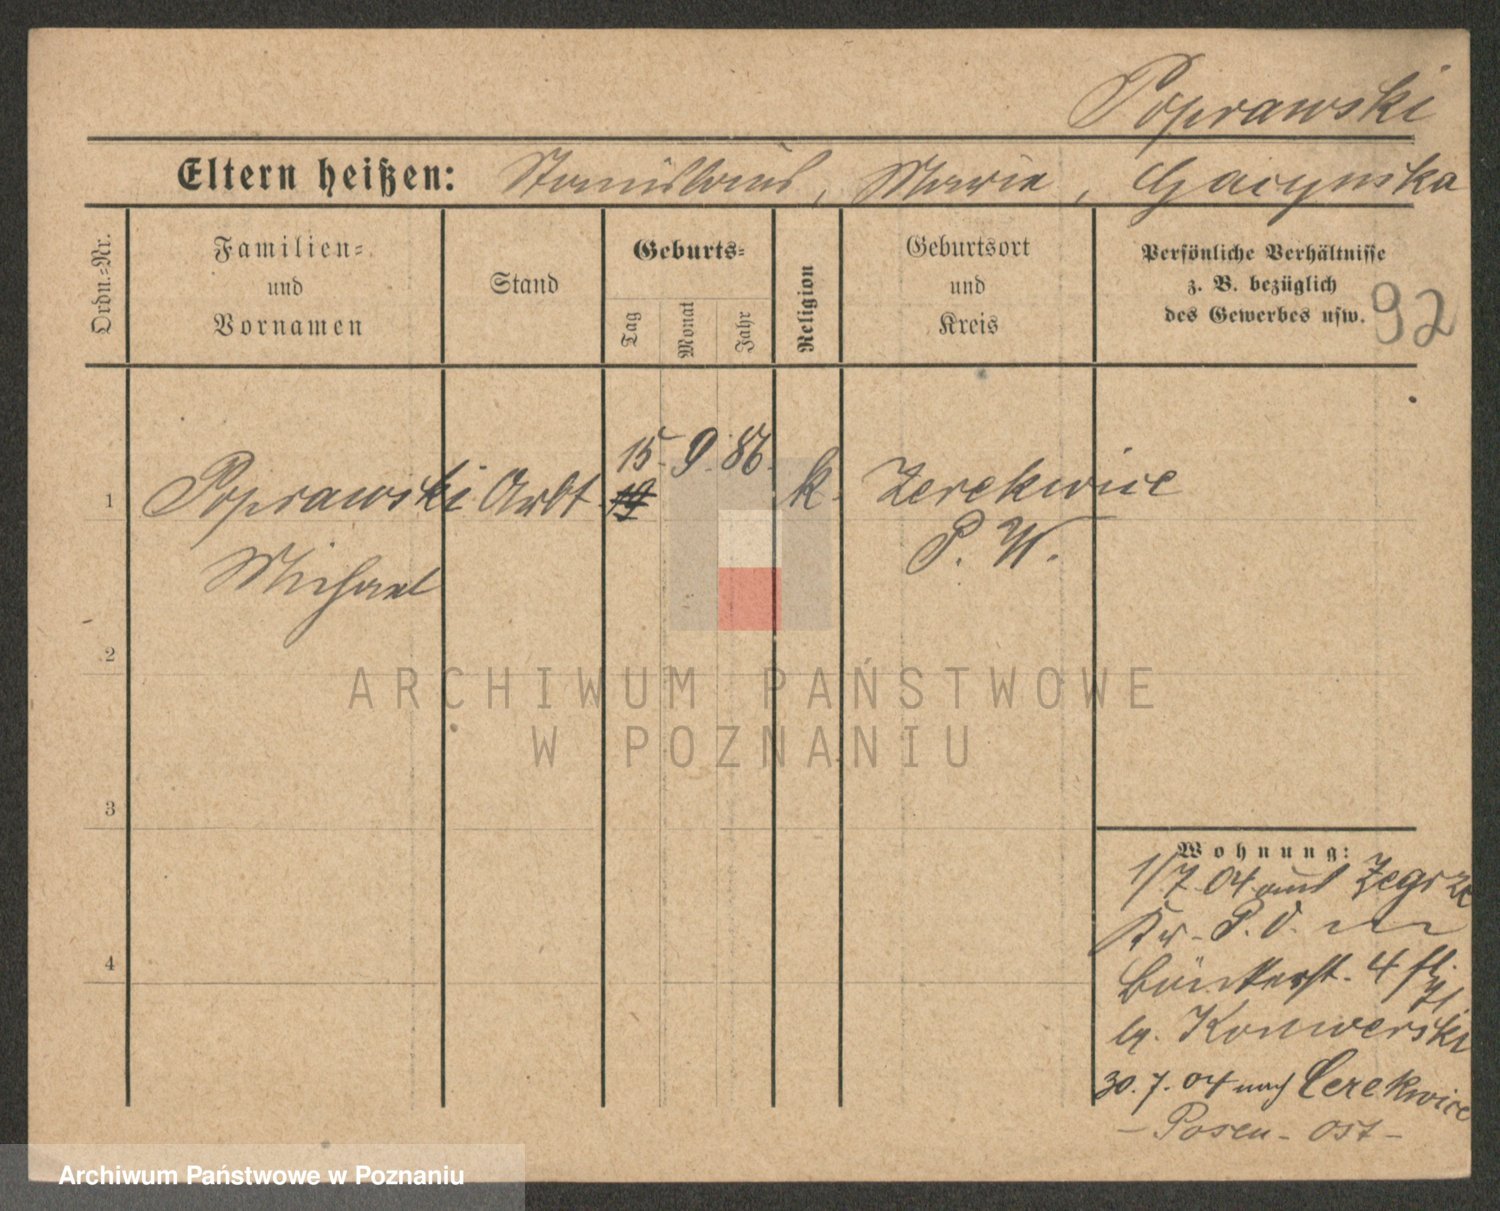 Poprawski
Eltern heißen: Stanislaus, Maria, Gacynska
Ordn.-Nr.
Familien-
und
Vornamen
Stand
Geburts-
Tag
Monat
Jahr
Religion
Geburtsort
und
Kreis
Persönliche Verhältnisse
z. B. bezüglich
des Gewerbes usw.
92
1
Poprawski Arbt. 15. 9. 86. k. Zerekwice
19
Michael
P. W.
2
ARCHIWUM PAŃSTWOWE
W POZNANIU
3
Wohnung:
1/7 04 aus Zegrze
Kr. P. O. in
4
4
b. Konwerski
30. 7. 04 nach Cerekwice
- Posen - Ost -
Archiwum Państwowe w Poznaniu